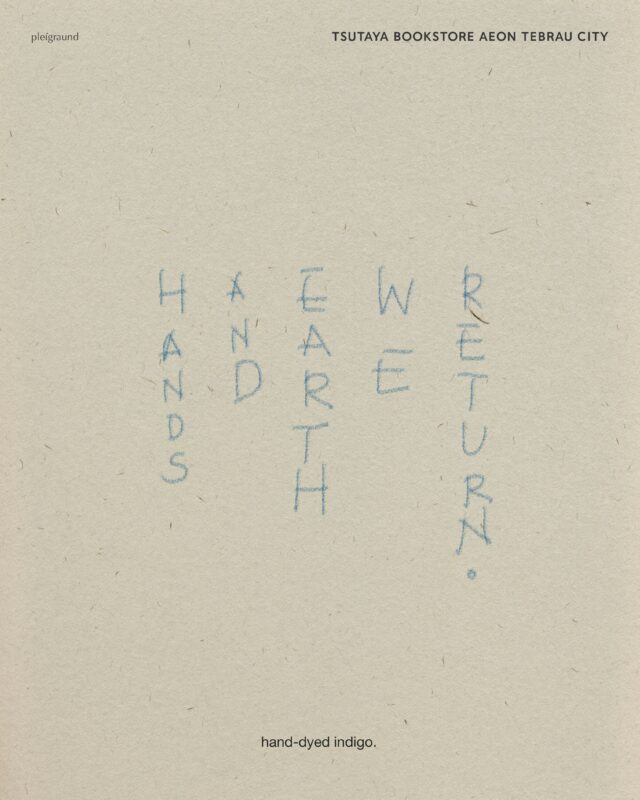 pleígraund
TSUTAYA BOOKSTORE AEON TEBRAU CITY
HANDS
AND
EARTH
WE
RETURN.
hand-dyed indigo.